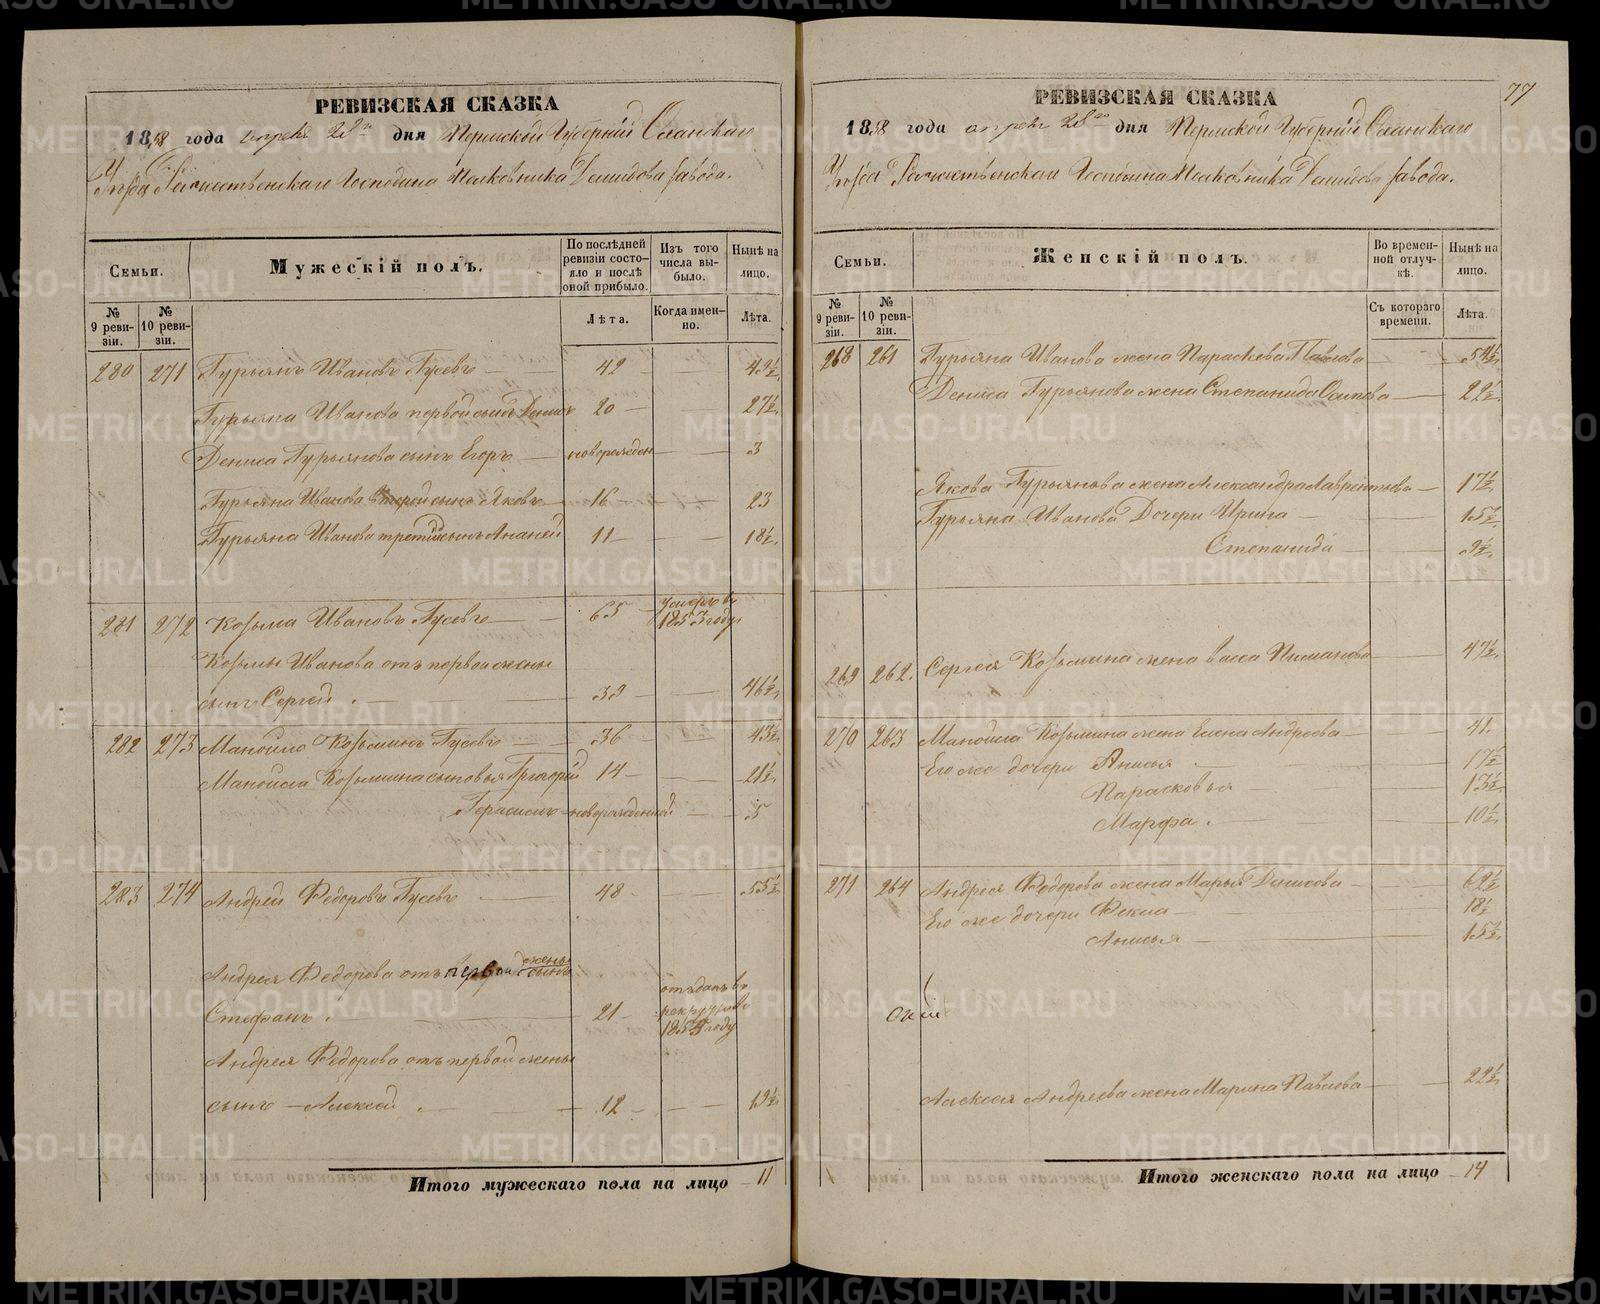 РЕВИЗСКАЯ СКАЗКА
1858 года апреля 28го дня Пермской Губернiи Осинскаго
Уѣзда Рождественскаго Господина Полковника Демидова завода.
Семьи.
Мужескiй полъ.
По послѣдней ревизiи состояло и послѣ оной прибыло.
Изъ того числа выбыло.
Нынѣ на лицо.
№ 9 ревизiи.
№ 10 ревизiи.
Лѣта.
Когда именно.
Лѣта.
280 271 Гурьянъ Ивановъ Гусевъ 42 49½
Гурьяна Иванова первой сынъ Денисъ 20 27½
Дениса Гурьянова сынъ Егоръ новорожден 3
Гурьяна Иванова второй сынъ Яковъ 16 23
Гурьяна Иванова третiй сынъ Ананей 11 18½
281 272 Козьма Ивановъ Гусевъ 65 умеръ въ 1853 году
Козьмы Иванова отъ первой жены
сынъ Сергей 39 46½
282 273 Манойло Козьминъ Гусевъ 36 43½
Манойла Козьмина сыновья Григорiй 14 21½
Герасимъ новорожденной 5
283 274 Андрей Федоровъ Гусевъ 48 55½
Андрея Федорова отъ первой жены сынъ
Стефанъ 21 отъданъ въ рекруты въ 1855 году
Андрея Федорова отъ первой жены
сынъ Алексей 12 19½
Итого мужескаго пола на лицо 11
77
РЕВИЗСКАЯ СКАЗКА
1858 года апреля 28го дня Пермской Губернiи Осинскаго
Уѣзда Рождественскаго Господина Полковника Демидова завода.
Семьи.
Женскiй полъ.
Во временной отлучкѣ.
Нынѣ на лицо.
№ 9 ревизiи.
№ 10 ревизiи.
Съ котораго времени.
Лѣта.
268 261 Гурьяна Иванова жена Параскева Павлова 54½
Дениса Гурьянова жена Степанида Осипова 22½
Якова Гурьянова жена Александра Лаврентьева 17½
Гурьяна Иванова Дочери Ирина 15½
Степанида 9½
269 262. Сергея Козьмина жена Васса Пиманова 47½
270 263 Манойла Козьмина жена Елена Андреева 41.
Его же дочери Анисья 17½
Парасковья 13½
Марфа 10½
271 264 Андрея Федорова жена Марья Денисова 62½
Его же дочери Фекла 18½
Анисья 15½
Алексея Андреева жена Марина Павлова 22½
Итого женскаго пола на лицо 14
METRIKI.GASO-URAL.RU